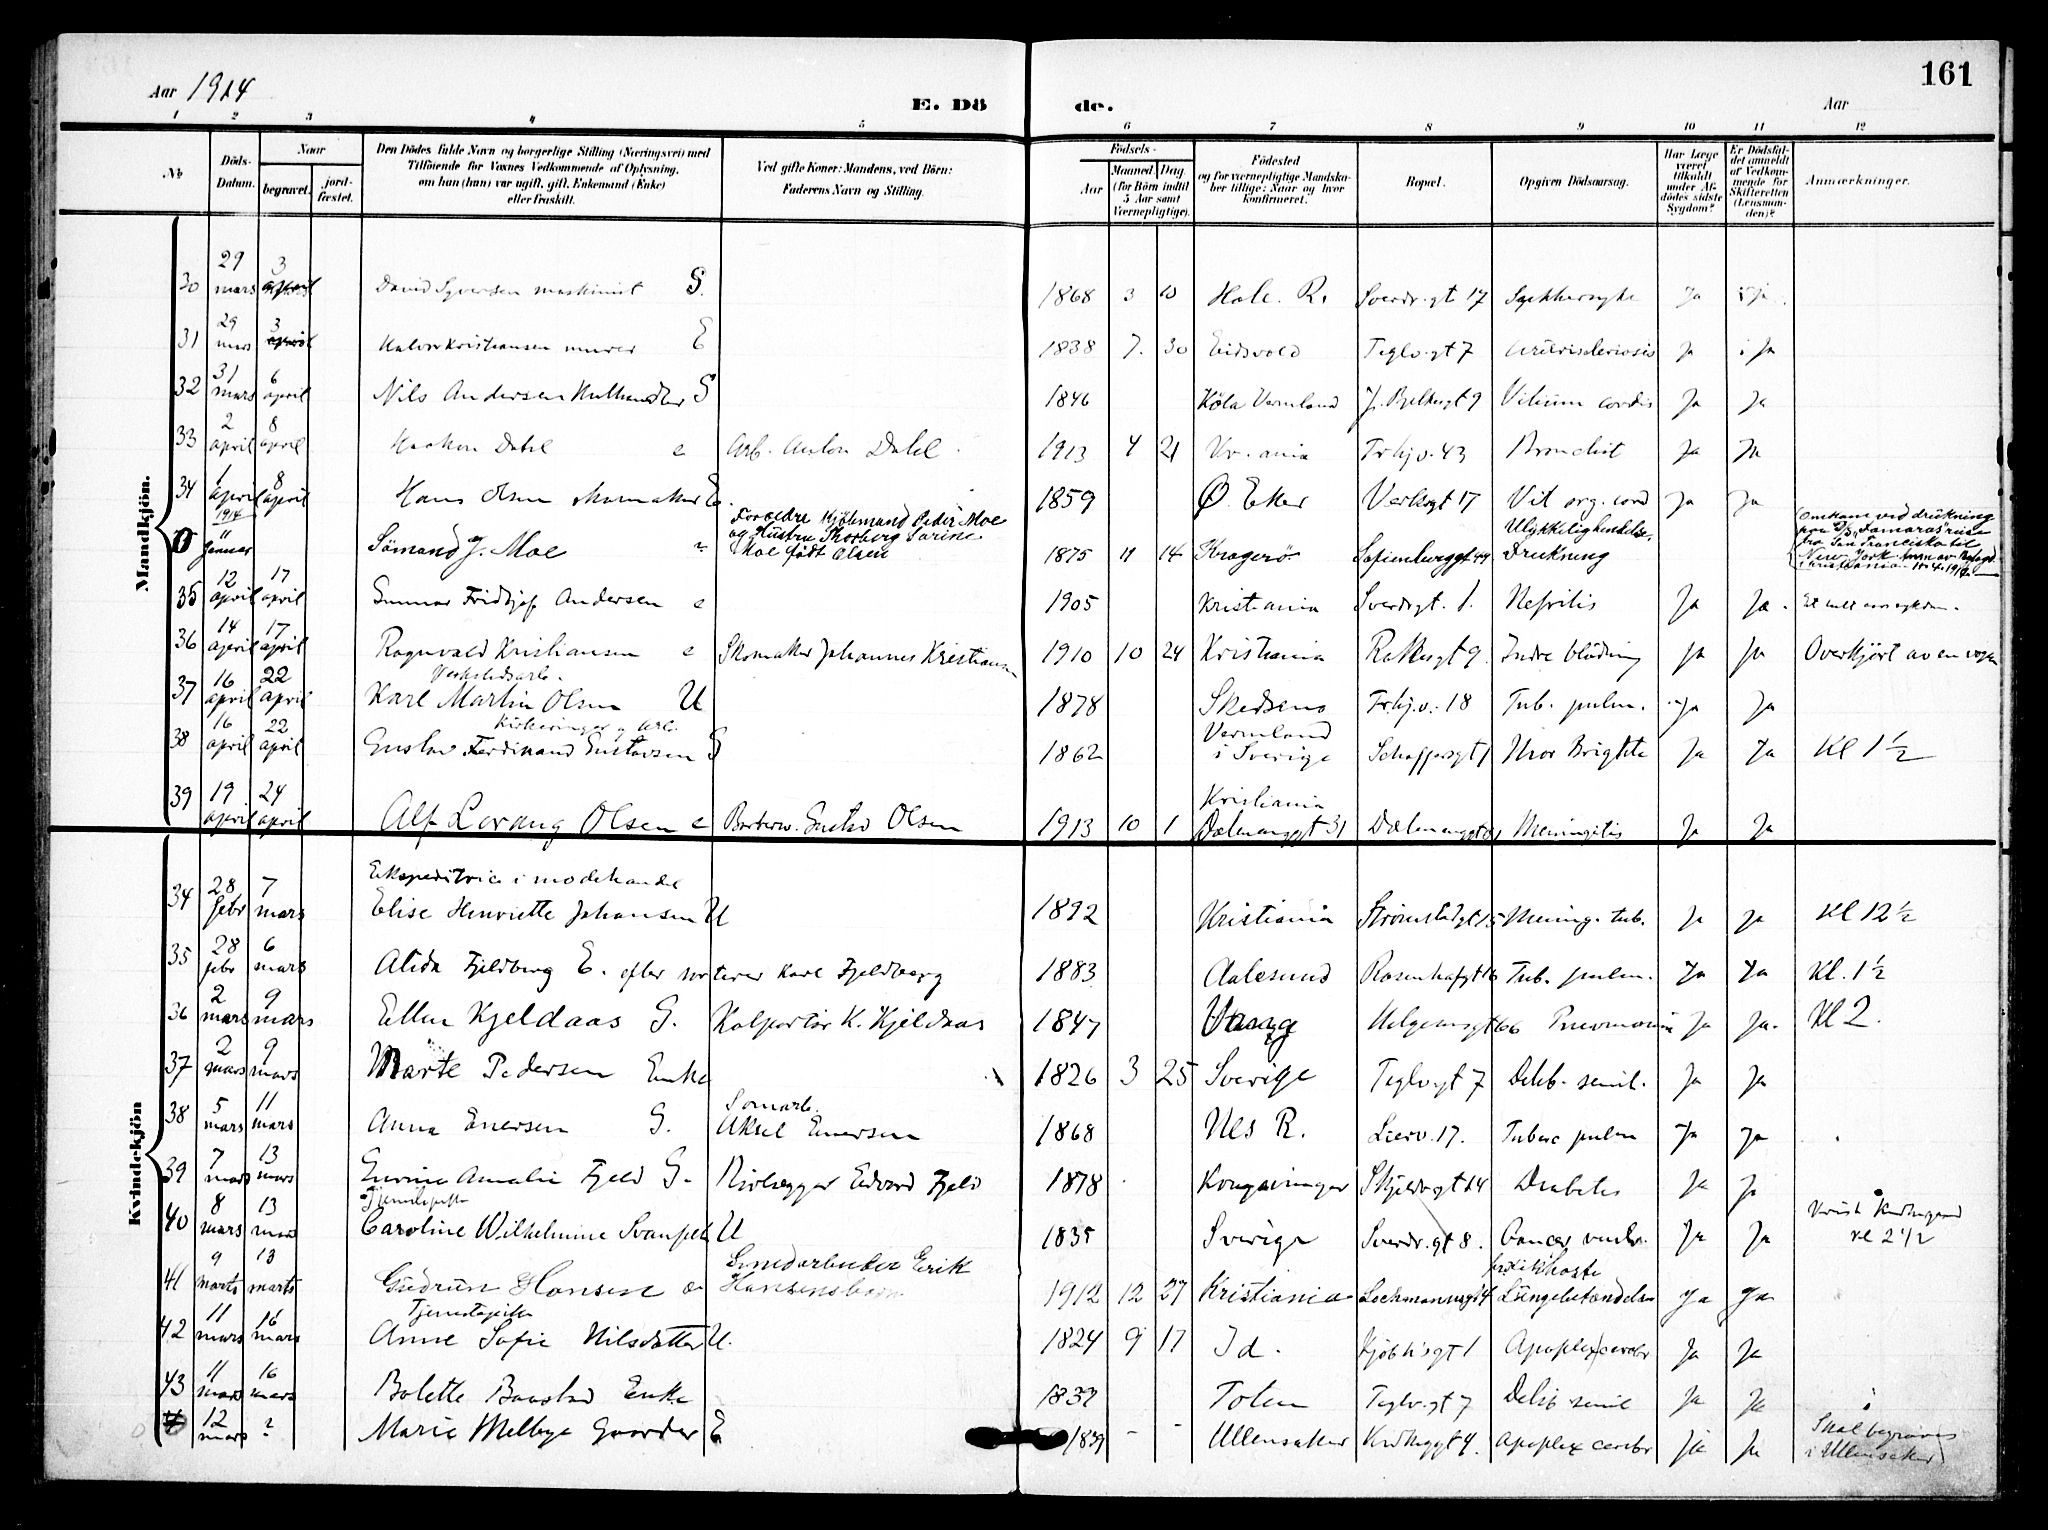 161
Aar 1914
E. Dö de.
Aar
1 2 3 4 5 6 7 8 9 10 11 12
No
Döds-Datum.
Naar
begravet.
jord-fæstet.
Den Dödes fulde Navn og borgerlige Stilling (Næringsvei) med
Tilföiende for Voxnes Vedkommende af Oplysning,
om han (hun) var ugift, gift, Enkemand (Enke)
eller fraskilt.
Ved gifte Koner: Mandens, ved Börn:
Faderens Navn og Stilling.
Födsels-
Aar
Maaned Dag.
(for Börn indtil
5 Aar samt
Værnepligtige).
Födested
og for værnepligtige Mandska-
ber tillige: Naar og hvor
konfirmeret.
Bopæl.
Opgiven Dödsaarsag.
Har Læge
været
tilkaldt
under Af-
dödes sidste
Sygdom?
Er Dödsfal-
det anmeldt
af Vedkom-
mende for
Skifteretten
(Lensman-
den)?
Anmærkninger.
Mandkjön.
30 29 mars 3 april David Syversen maskinist G. 1868 3 10 Hole. R. Sverdr.gt 17 Sukkersyke Ja Ja.
31 29 mars 3 april Halvor Kristiansen murer E 1838 7. 30 Eidsvold Teglv.gt 7 Ja Ja
32 31 mars 6 april Nils Andersen G 1846 Köla Vermland J. Bjelkesgt 9 Vitium cordis Ja Ja
33 2 april 8 april Haakon Dahl e Arb. Anton Dahl. 1913 4 21 Kr.ania Tr.hj.v. 43 Bronchit Ja Ja
34 1 april 8 april Hans Olsen skomaker E. 1859 Ø. Eker Verksgt 17 Vit. org. cord Ja Ja
0 1914 11 Januar Sömand J. Moe ? Forældre Kjöbmand Peder Moe
og Hustru Thorberg Sarine
Moe födt Olsen 1875 11 14 Kragerö Sofienberggt 44 Ulykkelighendelse,
Drukning Omkom ved drukning
fra D/S "Tamaras" reise
fra San Francisko til
New York
35 12 april 17 april Gunnar Fridtjof Andersen e 1905 Kristiania Sverdrgt. 1. Nefritis Ja Ja.
36 14 april 17 april Ragnvald Kristiansen e Skomaker Johannes Kristiansen 1910 10 24 Kristiania Rathkesgt 9. Indre blödning Ja Ja Overkjört av en vogn
37 16 april 22 april Verkstedsarb.
Karl Martin Olsen U 1878 Skedsmo Tr.hj.v. 18 Tub. pulm. Ja Ja
38 16 april 22 april Kirkeringer og Arb.
Gustav Ferdinand Gustavsen G 1862 Vermland
i Sverige Schaffersgt 1 Mor Brigthe Ja Ja Kl 1½
39 19 april 24 april Alf Lorang Olsen e Gustav Olsen 1913 10 1 Kristiania
Dælenenggt 31 Dælenenggt 31 Meningitis Ja Ja
Kvindekjön
34 28 febr 7 mars Ekspeditrice i modehandel
Elise Henriette Johansen U 1892 Kristiania Strömstadgt 15 Mening. tub. Ja Ja Kl 12½
35 28 febr 6 mars Alida Fjeldberg E. efter sorterer Karl Fjeldberg 1883 Aalesund Rosenhofgt 16 Tub. pulm. Ja Ja Kl. 1½
36 2 mars 9 mars Ellen Kjeldaas G. Kolportör K. Kjeldaas 1847 Vang Helgensgt 66 Pneumonia Ja Ja. Kl 2.
37 2 mars 9 mars Marte Pedersen Enke 1826 3 25 Sverige Teglvgt 7 Debil. senil. Ja Ja
38 5 mars 11 mars Anna Enersen G. Aksel Enersen 1868 Nes R. Lierv. 17. Tuberc pulm Ja Ja
39 7 mars 13 mars Amalie Fjeld G. Rörlegger Edvard Fjeld 1878 Kongsvinger Skjeldsgt 14 Diabetes Ja Ja
40 8 mars 13 mars Tjenestepike
Caroline Wilhelmine U 1835 Sverige Sverdr.gt 8. Cancer Ja Ja Kl 2½
41 9 marts 13 marts Gudrun Hansen e Smedarbeider Erik
Hansens barn 1912 12 27 Kristiania Lochmannsgt 4 Kikhoste
Lungebetændelse Ja Ja
42 11 mars 16 mars Tjenestepike
Anne Sofie Nilsdatter U. 1824 9 17 Id. Kjöb.h.sgt 1 Apoplex cerebr Ja Ja
43 11 mars 16 mars Bolette Baastad Enke 1832 Toten Teglv.gt 7 Debil senil Ja Ja
44 12 mars ? Marie Melbye E 1839 - - Ullensaker Apoplex cerebr Ja Ja Skal begraves
i Ullensaker